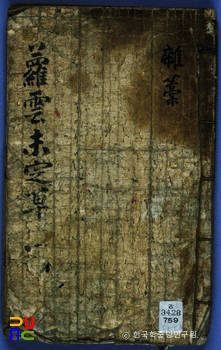 雜藁
蘿雲未定草
중
3428
759
© 한국학중앙연구원